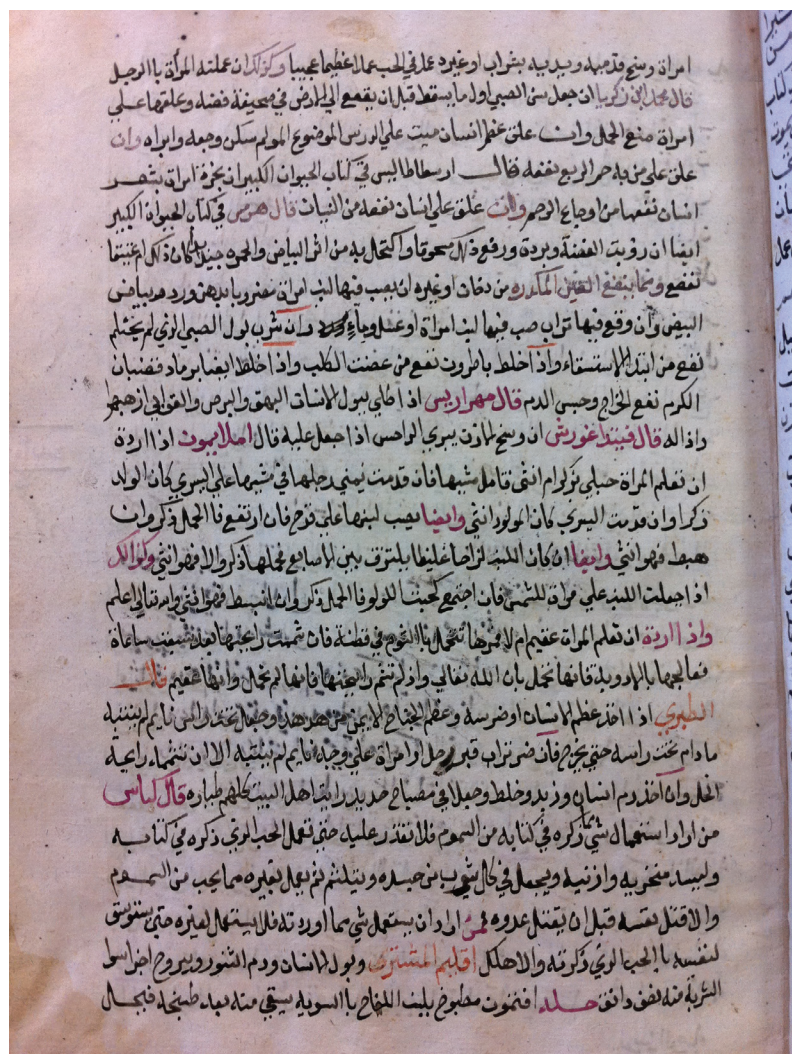 امراة وسخ قدميه ويديه بشراب او غيره عمل في الحب عملا عظيما عجيبا وكذلك ان عملته المرأة باالرجل
قال محمد ابن زكريا ان جعل سن الصبي اول ما يسقط قبل ان يقع الي الارض في صحيفة فضه وعلقها علي
امراة منع الحمل وان علق عظم انسان ميت علي الضرس الموضوع المولم سكن وجعه وابراه وان
علق علي من به حمي الربع نفعه قال ارسطاطاليس في كتاب الحيوان الكبير ان بخرة امراة بشعر
انسان نفعها من اوجاع الرحم وان علق علي انسان نفعه من النسيان قال هرمس في كتاب الحيوان الكبير
ايضا ان رؤيت الفضة وبردة ورفع ذلك سحوقا واكتحل به من اثر البياض والحمره
نفع ومما ينفع العين المكدوره من دخان او غيره ان يصب فيها لبن امراة مضروبا بدهن ورد مع بياض
البيض وان وقع فيها تراب صب فيها لبن امراة او عسل وان شرب بول الصبي الذي لم يحتلم
نفع من ابتدا الاستسقاء واذا خلط بانطرون نفع من عضت الكلب واذا خلط ايضا برماد قضبان
الكرم نفع الخراج وحبس الدم قال مهراريس اذا طلي ببول الانسان البهق والبرص والقوابي اذهبها
واذاله قال فيثاغورش ان وسخ الاذن يبري الداحس اذا جعل عليه قال اردة
ان تعلم المراة حبلي بذكر ام انثي فتامل مشيها فان قدمت يمني رجلها في مشيها علي اليسري كان الولد
ذكرا وان قدمت اليسري كان المولود انثي وايضا يصب لبنها علي قدح فان ارتفع فا الحمل ذكر وان
هبط فهو انثي وايضا ان كان اللبن لزاجا غليظا يلتزق بين الاصابع فحملها ذكر والا فهو انثي وكذالك
اذا جعلت اللبن علي مراة للشمس فان اجتمع كحبت اللولو فا الحمل ذكر وان انبسط فهو انثي والله تعالي اعلم
واذا اردة ان تعلم المراة عقيم ام لا فمرها تتحمل باالثوم في قطنة فان شمت رايحتها بعد سبعت ساعاة
فعالجها بالادوية فانها تحمل باذن الله تعالي واذ لم تشم رايحتها فانها لم تحمل وانها عقيم قال
الطبري اذا اخذ عظم الانسان او ضرسه وعظم الجناح الايمن من هدهد وجعل تحت راس نايم لم ينتبه
مادام تحت راسه حتي يخرج فان ضر تراب قبر رجل او امراة علي وجه نايم لم ينتبه الا ان تشمه رايحة
الخل وان اخذ دم انسان وزبد وخلط وجعل في مصباح حديد رايت اهل البيت كلهم طياره قال
من اراد استعمال شئ ذكره في كتابه من السموم فلا تقدر عليه حتي تعمل الحب الذي ذكره في كتابه
وليسد منخريه واذنيه ويجعل في كل من جسده ويتلثم ثم يعمل بغيره مما يحب من السموم
والا قتل نفسه قبل ان يقتل عدوه فمن اراد ان يستعمل شي مما اوردته فلا يستعمل لغيره حتي يستوثق
لنفسه باالحب الذي ذكرته والا هلك اقليم المشتري وبول الانسان ودم الثور وبيروح اجزا سوا
الشربة منه نصف دانق حله افتمون مطبوخ بلبن اللقاح باالسويه يسقي منه بعد طبخه